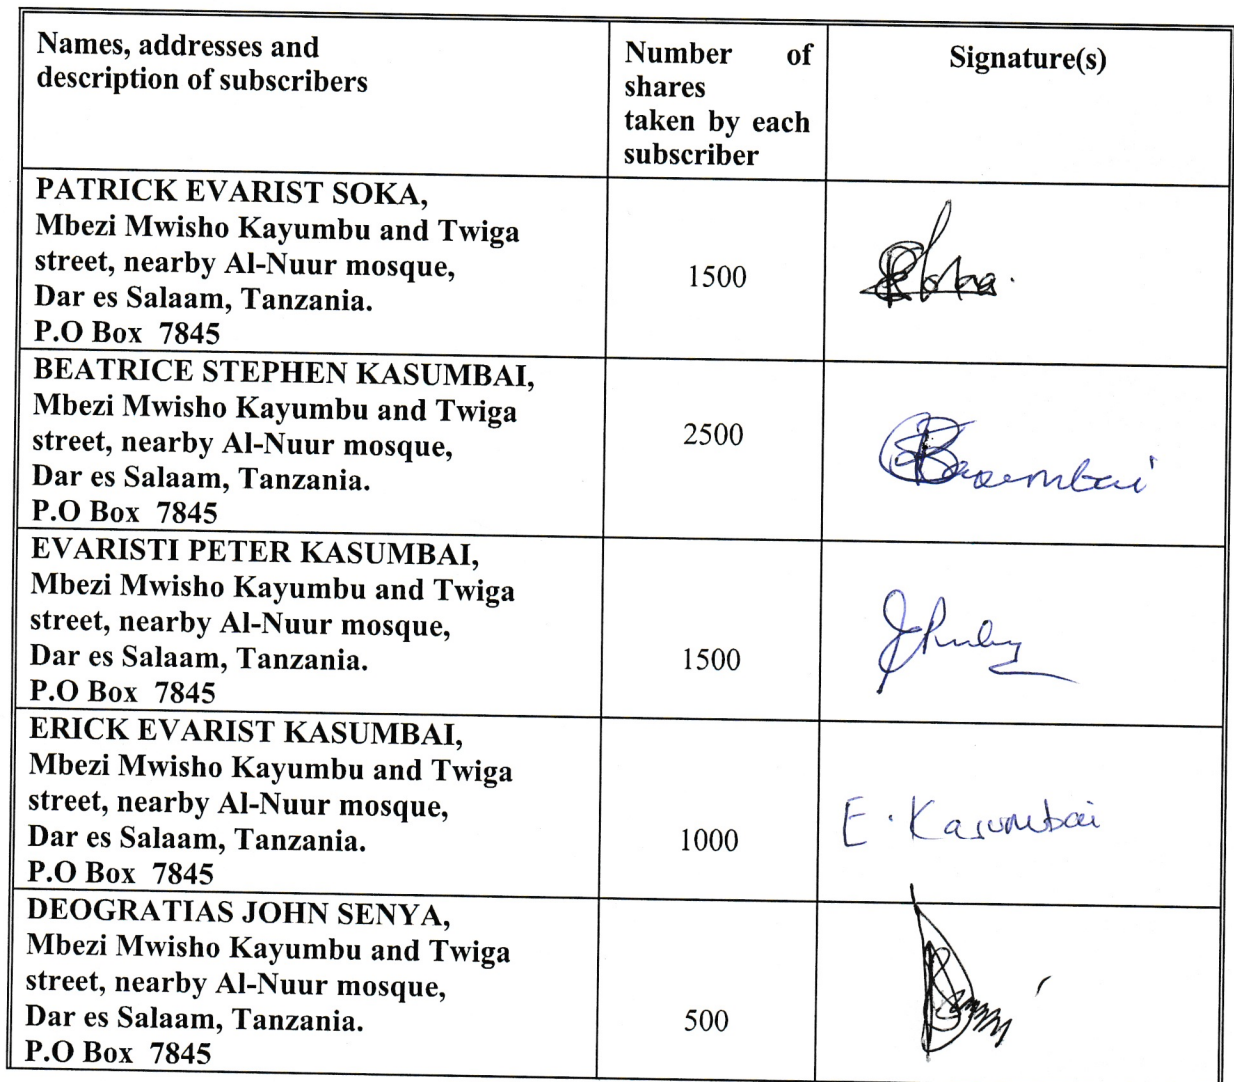 Names, addresses and
description of subscribers
Number of
shares
taken by each
subscriber
Signature(s)
PATRICK EVARIST SOKA,
Mbezi Mwisho Kayumbu and Twiga
street, nearby Al-Nuur mosque,
Dar es Salaam, Tanzania.
P.O Box 7845
1500
BEATRICE STEPHEN KASUMBAI,
Mbezi Mwisho Kayumbu and Twiga
street, nearby Al-Nuur mosque,
Dar es Salaam, Tanzania.
P.O Box 7845
2500
EVARISTI PETER KASUMBAI,
Mbezi Mwisho Kayumbu and Twiga
street, nearby Al-Nuur mosque,
Dar es Salaam, Tanzania.
P.O Box 7845
1500
ERICK EVARIST KASUMBAI,
Mbezi Mwisho Kayumbu and Twiga
street, nearby Al-Nuur mosque,
Dar es Salaam, Tanzania.
P.O Box 7845
1000
E. Kasumbai
DEOGRATIAS JOHN SENYA,
Mbezi Mwisho Kayumbu and Twiga
street, nearby Al-Nuur mosque,
Dar es Salaam, Tanzania.
P.O Box 7845
500